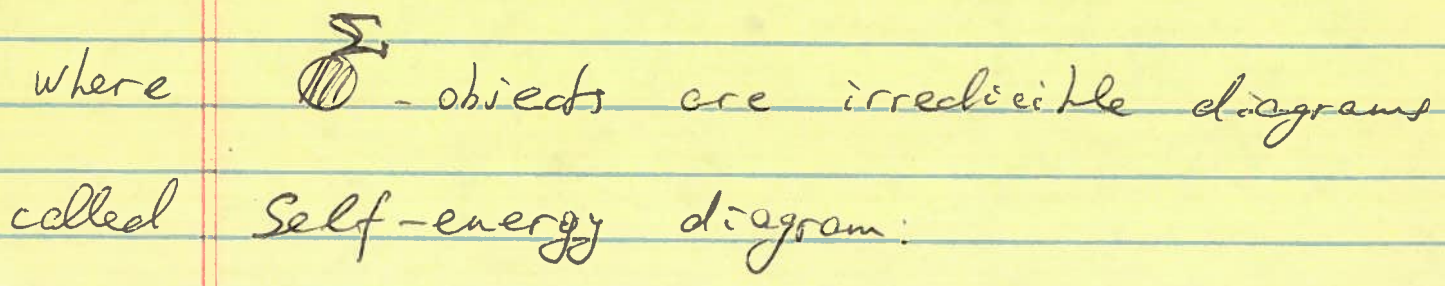 Σ
where - objects are irreducible diagrams
called Self-energy diagram: